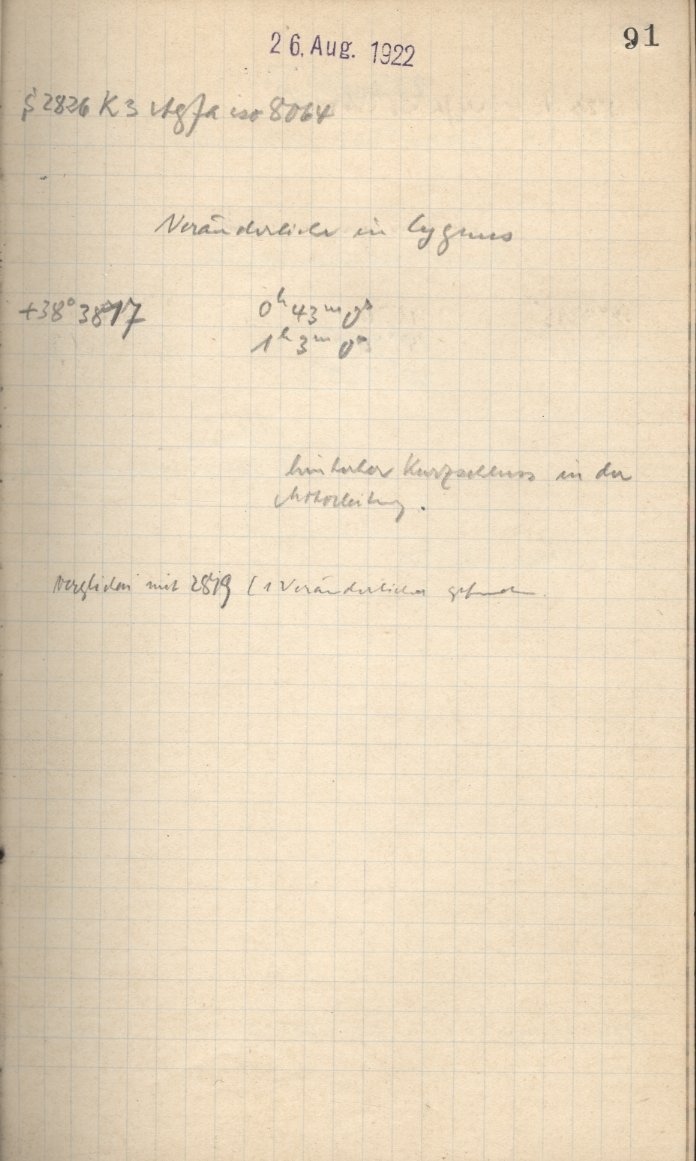 91
26. Aug. 1922
S 2826 K 3 Agfa iso 8064
Veränderliche in Cygnus
+38° 3817 0h 43m 0s
1h 3m 0s
Kurzschluss in der
Motorleitung.
Verglichen mit 2819 (1 Veränderlicher gefunden